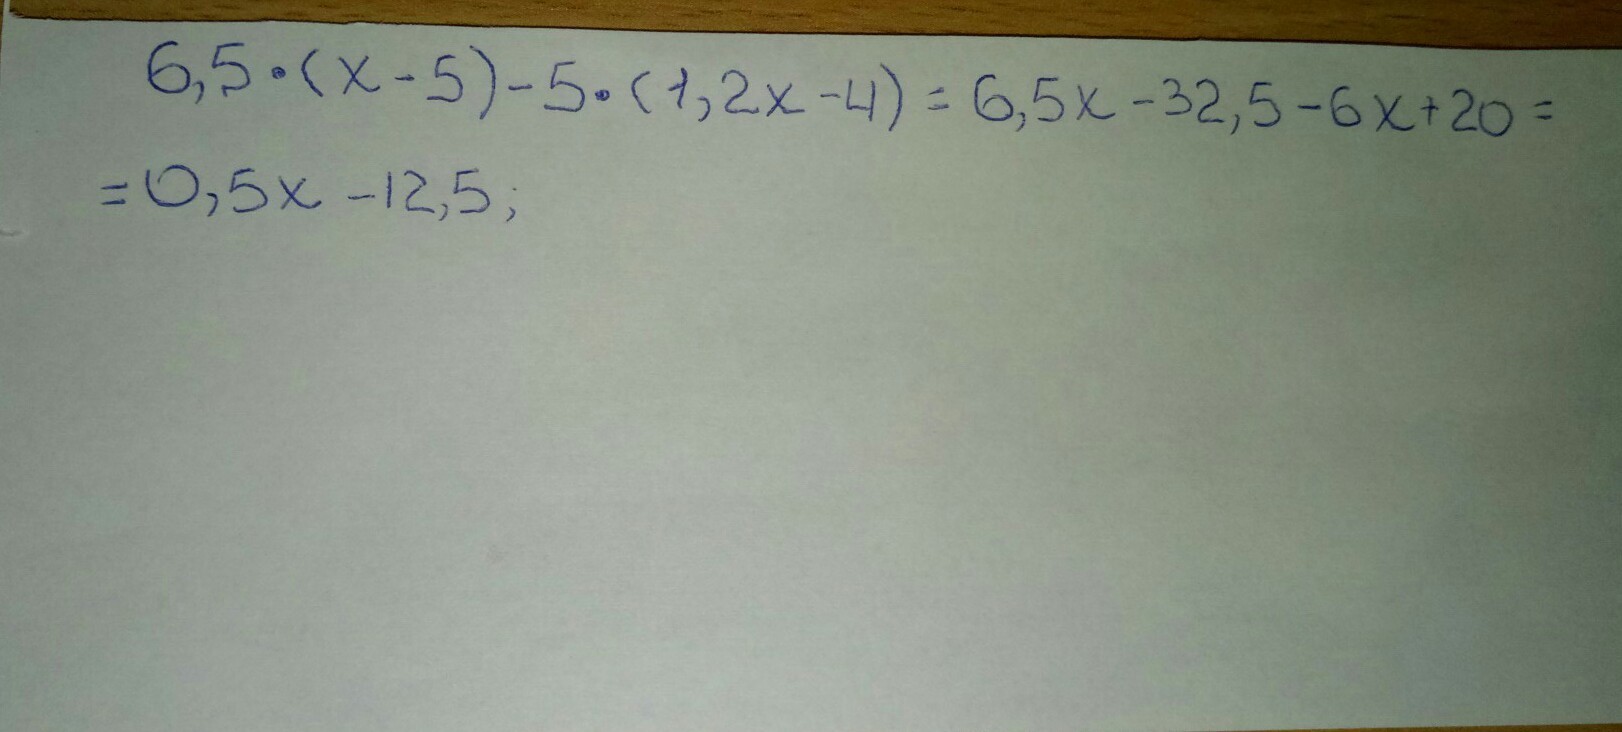 6,5·(x-5)-5·(1,2x-4)=6,5x-32,5-6x+20=
=0,5x-12,5;